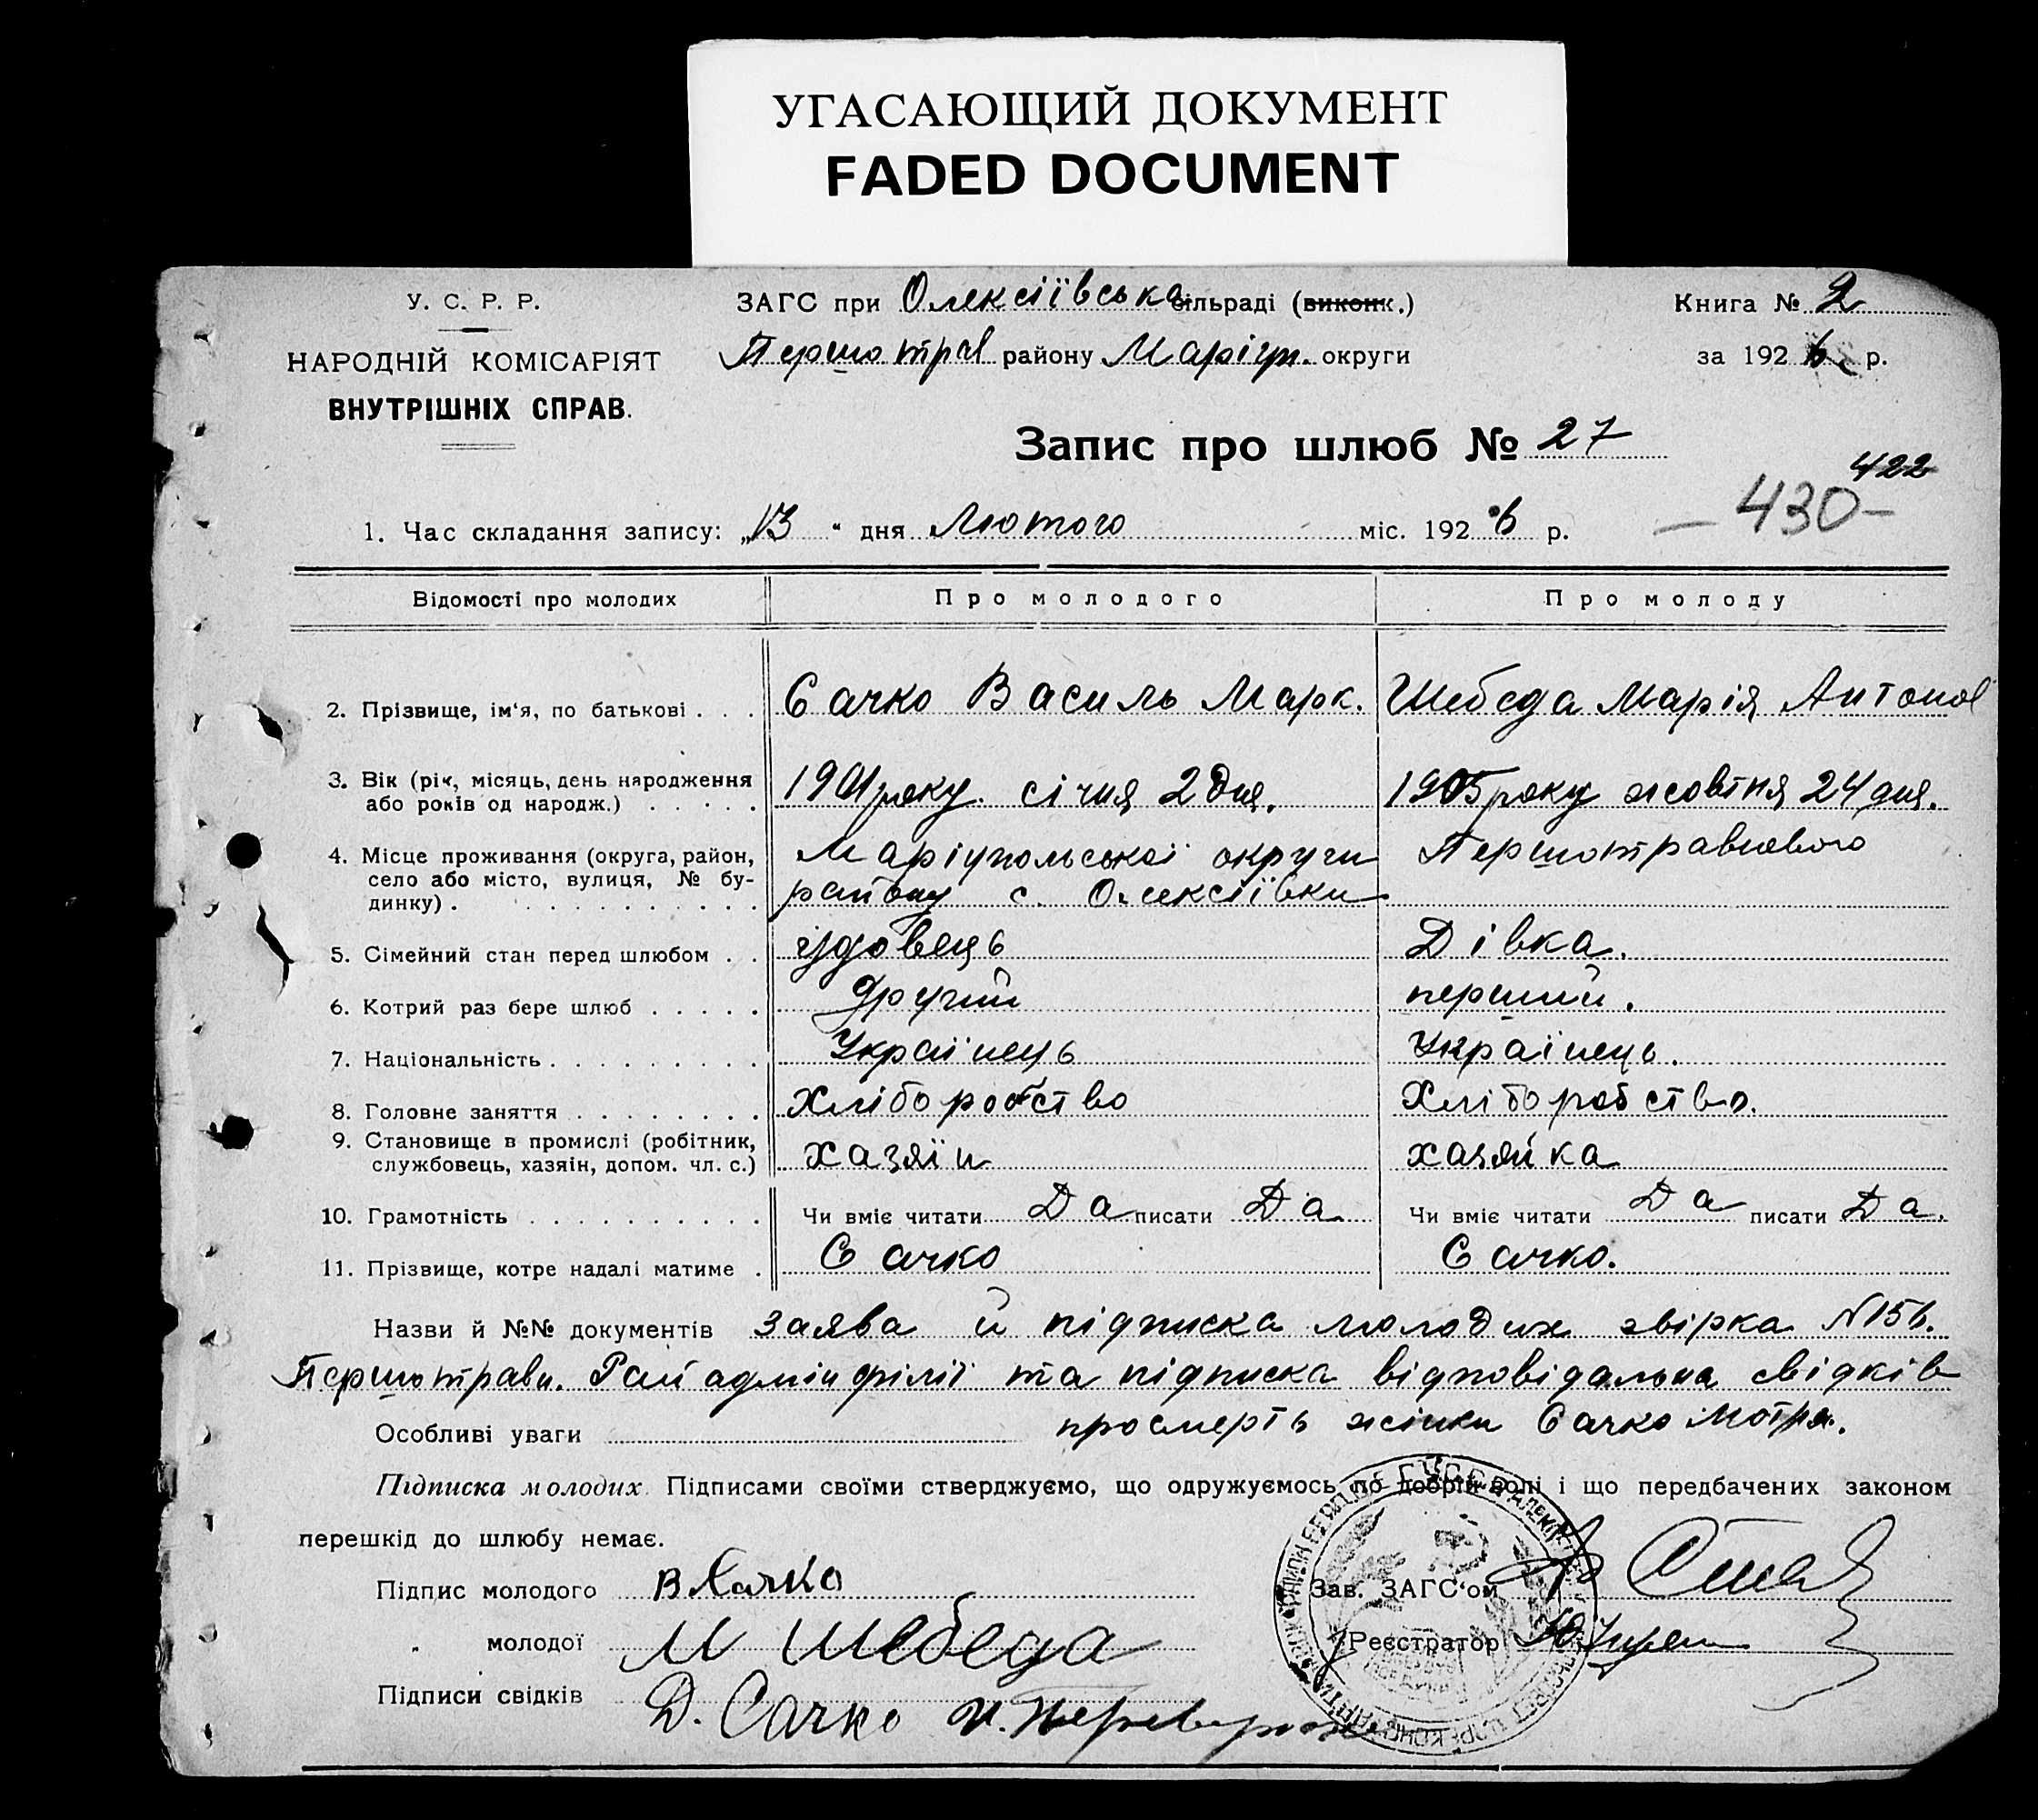 УГАСАЮЩИЙ ДОКУМЕНТ
FADED DOCUMENT
У. С. Р. Р.
НАРОДНІЙ КОМІСАРІЯТ
ВНУТРІШНІХ СПРАВ.
ЗАГС при Олексіївська сільраді (виконк.)
Першотрав району Маріуп. округи
Книга № 2
за 1926 р.
Запис про шлюб № 27
422
- 430 -
1. Час складання запису: „13" дня Лютого міс. 1926 р.
Відомості про молодих Про молодого Про молоду
2. Прізвище, ім'я, по батькові . . . Сачко Василь Марк. Шебеда Марія Антонов
3. Вік (рік, місяць, день народження або років од народж.) . . . . . 1901 року. січня 2 дня. 1905 року жовтня 24 дня.
4. Місце проживання (округа, район, село або місто, вулиця, № будинку) . Маріупольської округи Першотравневого
району с. Олексіївки
5. Сімейний стан перед шлюбом . . удовець Дівка.
6. Котрий раз бере шлюб . . . . . другий перший.
7. Національність . . . . . . . . . Українець Українець.
8. Головне заняття . . . . . . . . Хліборобство Хліборобство.
9. Становище в промислі (робітник, службовець, хазяін, допом. чл. с.) хазяїн хазяйка
10. Грамотність . . . . . . . . . . Чи вміє читати Да писати Да. Чи вміє читати Да писати Да.
11. Прізвище, котре надалі матиме . Сачко Сачко.
Назви й №№ документів заява й підписка молодих звірка N 156.
Першотравн. Рай адмін філії та підписка відповідальна свідків
Особливі уваги про смерть жінки Сачко Мотря.
Підписка молодих. Підписами своїми стверджуємо, що одружуємось по добрій волі і що передбачених законом
перешкід до шлюбу немає.
Підпис молодого В Сачко
Зав. ЗАГС'ом
„ молодої М Шебеда
Реєстратор
Підписи свідків Д. Сачко И.